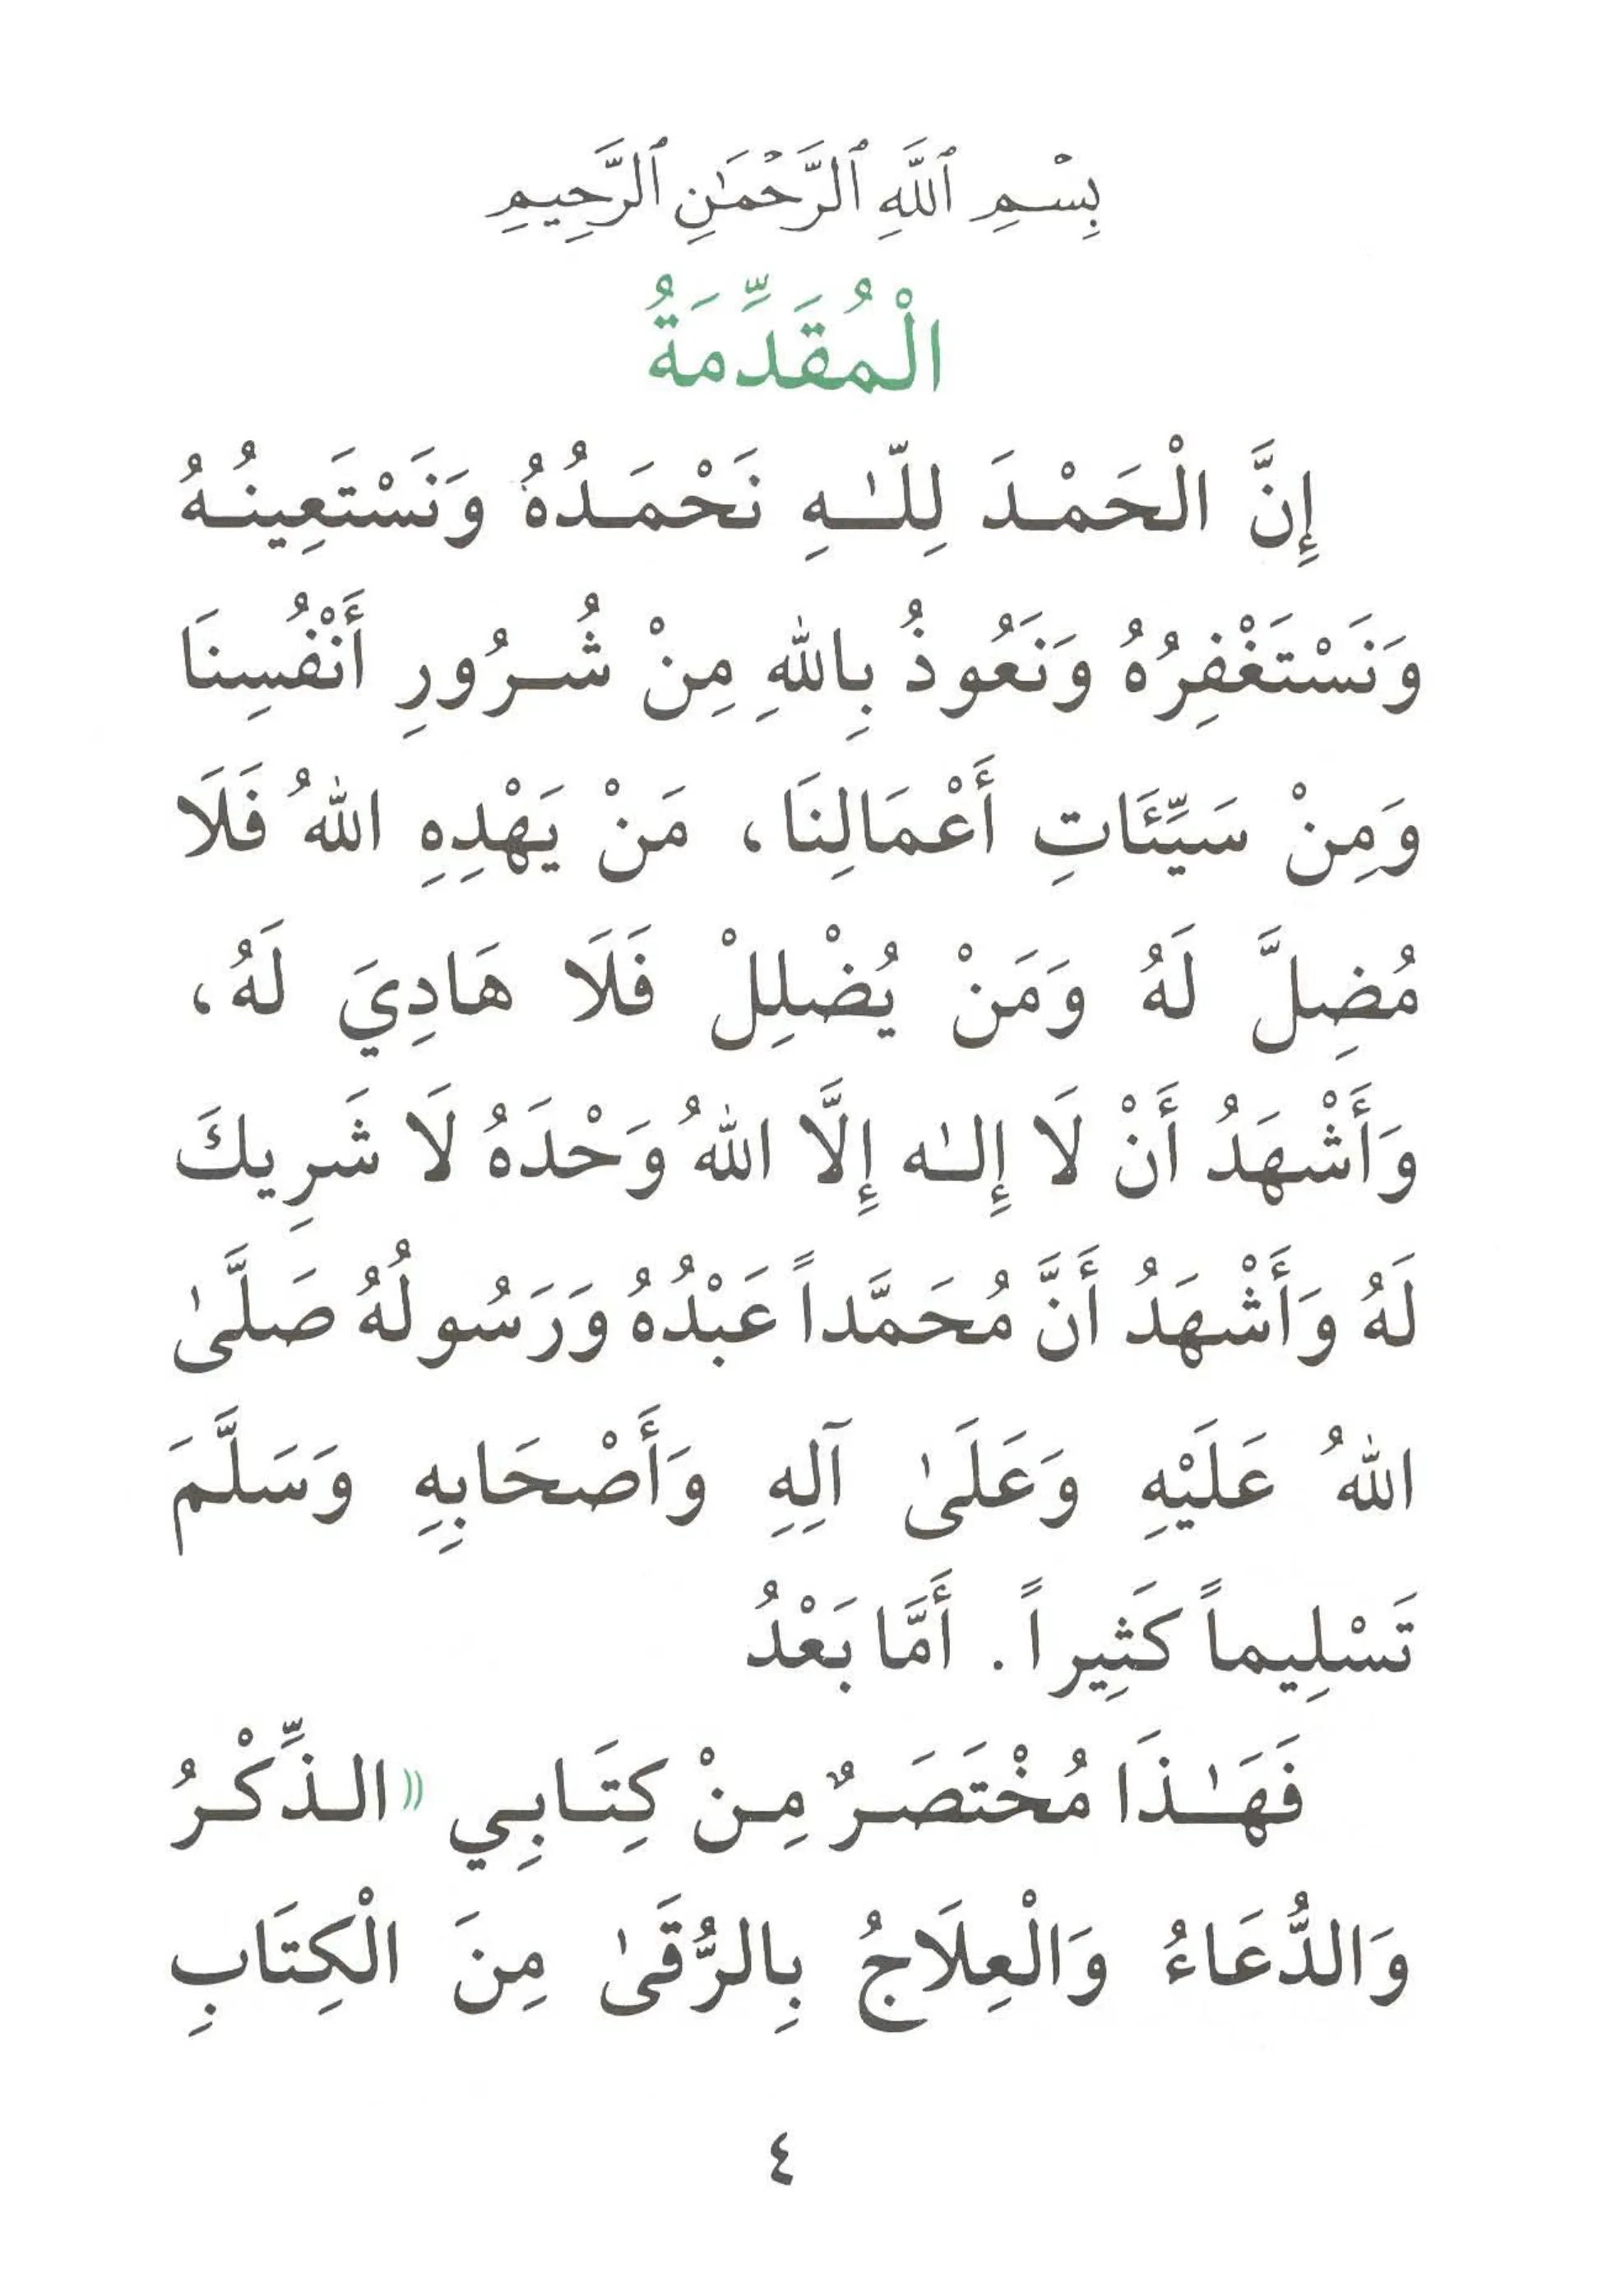 بِسْمِ ٱللَّهِ ٱلرَّحْمَٰنِ ٱلرَّحِيمِ
الْمُقَدِّمَةُ
إِنَّ الْحَمْدَ لِلّٰهِ نَحْمَدُهُ وَنَسْتَعِينُهُ
وَنَسْتَغْفِرُهُ وَنَعُوذُ بِاللهِ مِنْ شُرُورِ أَنْفُسِنَا
وَمِنْ سَيِّئَاتِ أَعْمَالِنَا، مَنْ يَهْدِهِ اللهُ فَلَا
مُضِلَّ لَهُ وَمَنْ يُضْلِلْ فَلَا هَادِيَ لَهُ،
وَأَشْهَدُ أَنْ لَا إِلٰه إِلَّا اللهُ وَحْدَهُ لَا شَرِيكَ
لَهُ وَأَشْهَدُ أَنَّ مُحَمَّداً عَبْدُهُ وَرَسُولُهُ صَلَّىٰ
اللهُ عَلَيْهِ وَعَلَىٰ آلِهِ وَأَصْحَابِهِ وَسَلَّمَ
تَسْلِيماً كَثِيراً. أَمَّا بَعْدُ
فَهَٰذَا مُخْتَصَرٌ مِنْ كِتَابِي «الذِّكْرُ
وَالدُّعَاءُ وَالْعِلَاجُ بِالرُّقَىٰ مِنَ الْكِتَابِ
٤